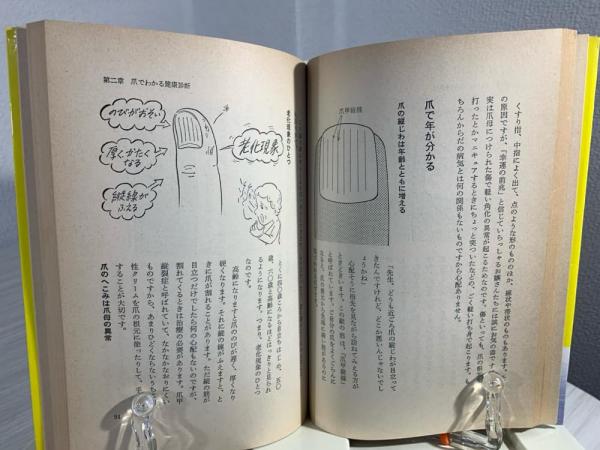 くすり指、中指によく出て、点のような形のもののほか、線状や帯状のものもあります。
の原因ですが、「幸運の前兆」と信じていらっしゃるお嬢さんたちには誠にお気の毒です
実は爪母につけられた傷で軽い角化の異常が起こるためなのです。傷といっても、爪の根
打ったとか、マニキュアするときにちょっと突ついたなどの、ごく軽い打ち身で起こります。も
ちろんからだの病気とは何の関係もないものですから心配ありません。
爪で年が分かる
爪の縦じわは年齢とともに増える
爪甲縦線
「先生、どうも近ごろ爪の縦じわが目立って
きたんですけれど、どこか悪いんじゃないでし
ょうかね」
心配そうに指先を見ながら訪ねてみえる方が
ときどきいます。この線の
と呼ばれています。ご自分の爪をよくごらんに
第二章 爪でわかる健康診断
老化現象のひとつ
のびがおそい
厚く、かたくなる
縦線がふえる
老化現象
とくに四〇歳ころから目立ちはじめ、五〇
歳、六〇歳と高齢になるほどはっきりと見られ
るようになります。つまり、老化現象のひとつ
なのです。
高齢になりますと爪ののびが遅く、厚くなり
硬くなります。それに縦の線がふえますと、と
きに爪が割れることがあります。ただ縦の線が
目立つだけでしたら何の心配もないのですが、
割れてくるときは治療の必要があります。爪甲
縦裂症と呼んでいますが、なかなかなおりにくい
ものですから、あまりひどくならないうち
性クリームを爪の根元に塗ったりして、手
することが大切です。
爪のへこみは爪母の異常
91